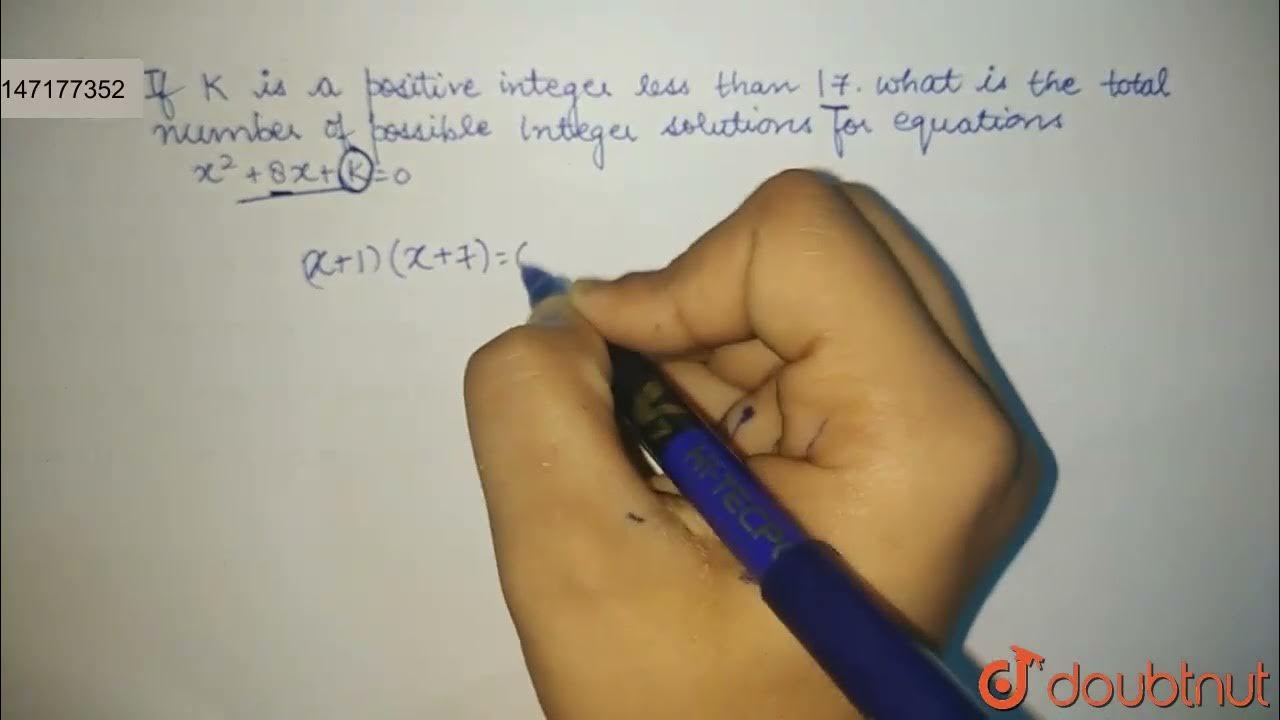 147177352
If K is a positive integer less than 17. what is the total
number of possible integer solutions For equations
x² + 8x + K = 0
(x+1) (x+7) = (
HI-TECPO
doubtnut